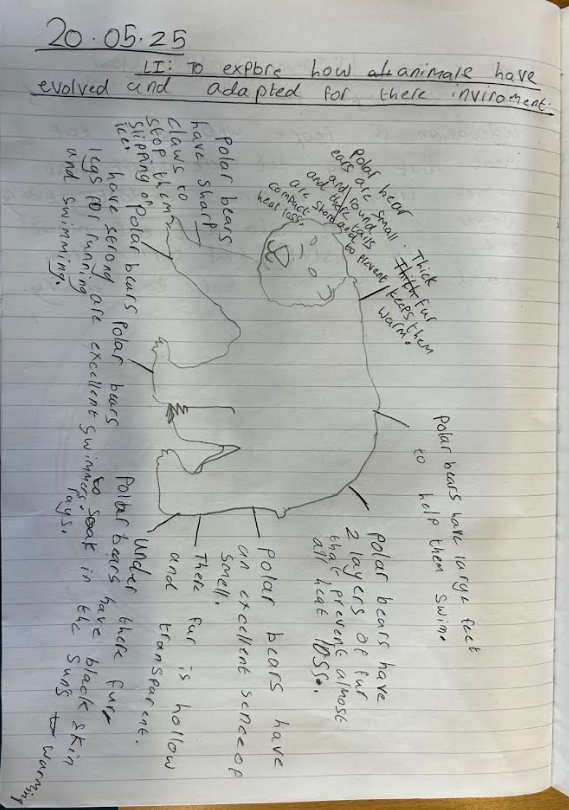 20.05.25
LI: To explore how animals have
evolved and adapted for there inviroment.
Polar bears
have sharp
claws to
stop them
slipping on
ice.
Polar bear
ears are small
and round
and there tails
are short and
compact to prevent
heat loss.
Thick
fur
keeps them
warm.
Polar bears have large feet
to help them swim.
Polar bears have
2 layers of fur
that prevent almost
all heat loss.
Polar bears have
an excellent sence of
smell.
There fur is hollow
and transparent.
Under there fur
Polar bears have black skin
to soak in the suns warming
rays.
Polar bears
are excellent swimmers.
Polar bears
have strong
legs for running
and swimming.